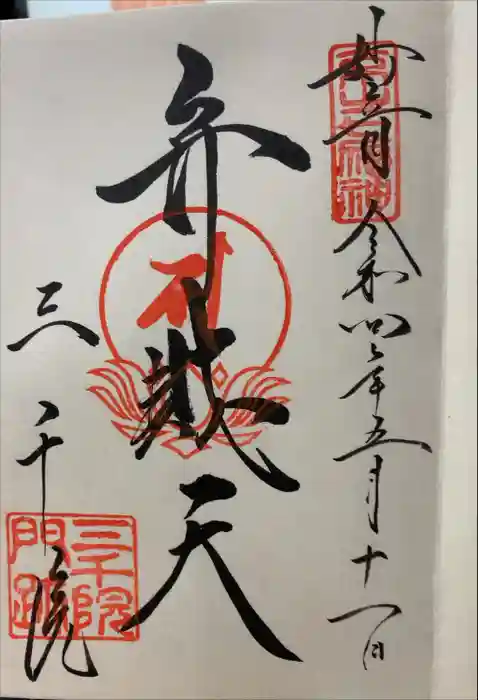 妙音 令和四年五月十一日
弁財天
三千院
三千院
門跡